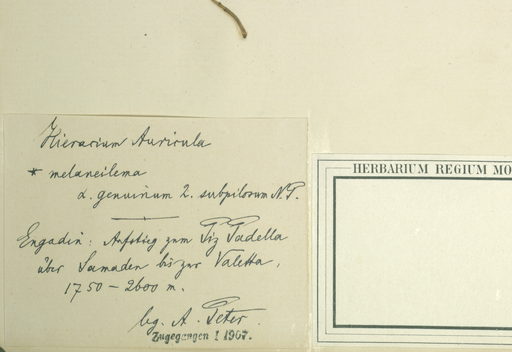 Hieracium Auricula
* melaneilema
α. genuinum 2. subpilosum N.P.
Engadin: Aufstieg zum Piz Padella
über Samaden bis zur Valetta,
1750 – 2600 m.
leg. A. Peter.
Zugegangen 1 1907.
HERBARIUM REGIUM MO